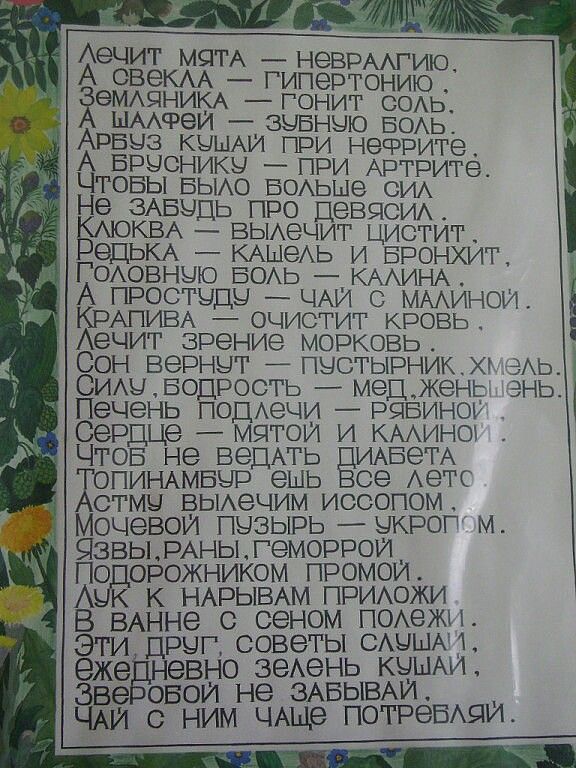 Лечит мята — невралгию,
А свекла — гипертонию,
Земляника — гонит соль,
А шалфей — зубную боль.
Арбуз кушай при нефрите,
А бруснику — при артрите.
Чтобы было больше сил
Не забудь про девясил.
Клюква — вылечит цистит,
Редька — кашель и бронхит,
Головную боль — калина,
А простуду — чай с малиной.
Крапива — очистит кровь,
Лечит зрение морковь.
Сон вернут — пустырник, хмель.
Силу, бодрость — мед, женьшень.
Печень подлечи — рябиной,
Сердце — мятой и калиной.
Чтоб не ведать диабета
Топинамбур ешь все лето.
Астму вылечим иссопом,
Мочевой пузырь — укропом.
Язвы, раны, геморрой
Подорожником промой.
Лук к нарывам приложи,
В ванне с сеном полежи.
Эти, друг, советы слушай,
Ежедневно зелень кушай,
Зверобой не забывай,
Чай с ним чаще потребляй.